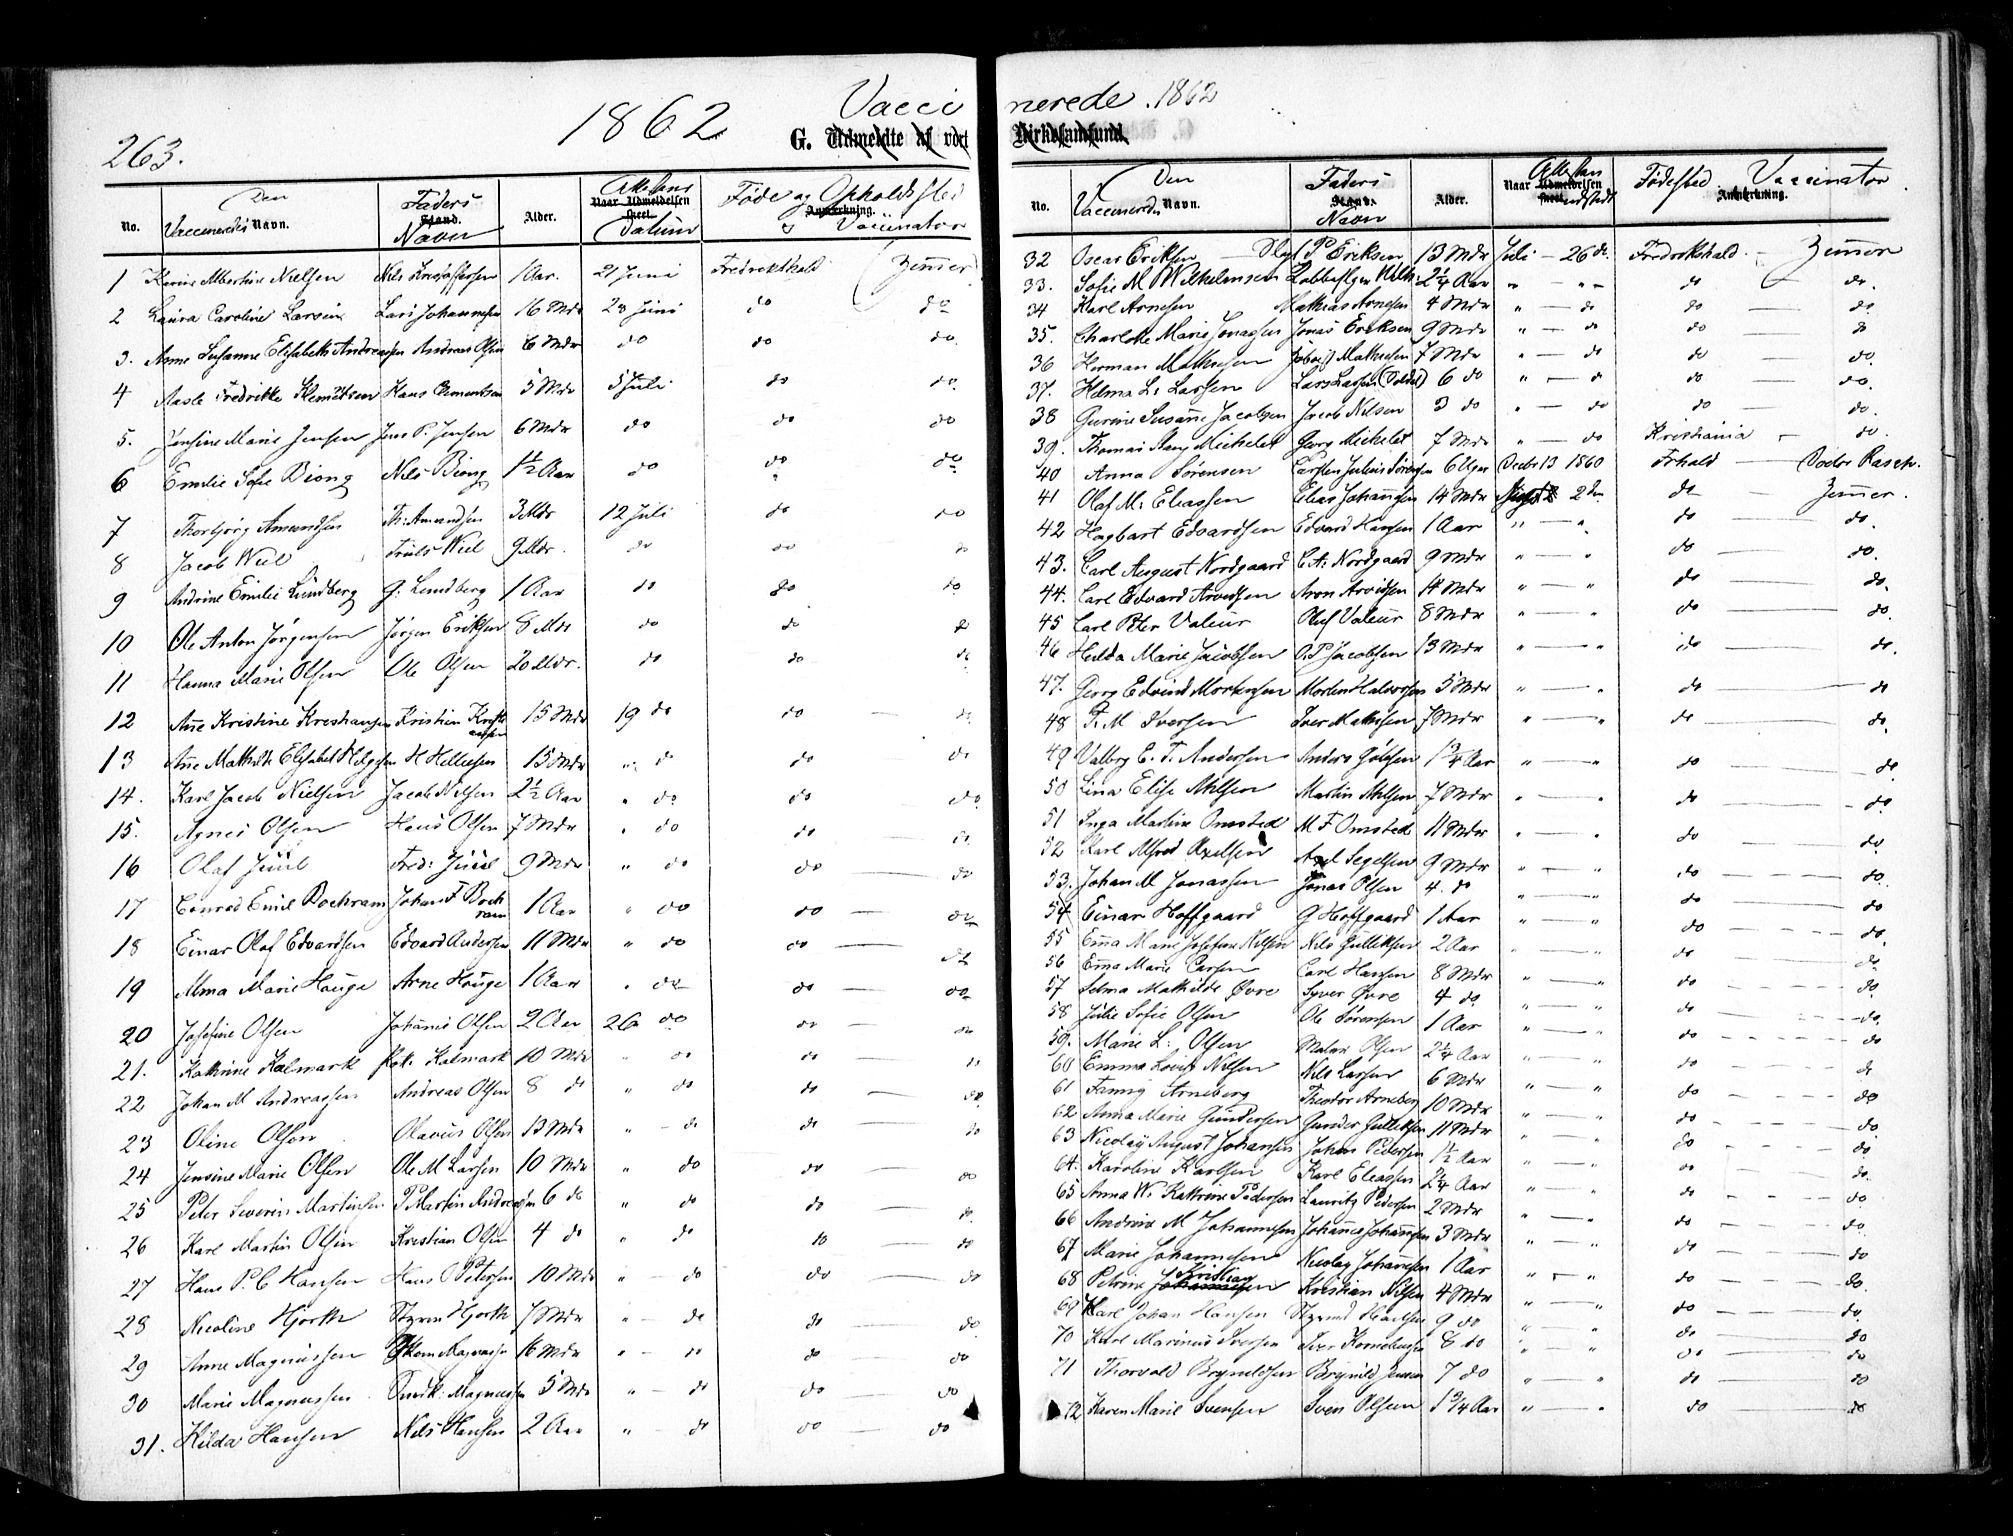 263.
1862
Vacci
G. Udmeldte af vort
No.
Den Vaccineredes Navn.
Faders Stand. Navn
Alder.
Attestens Naar Udmeldelsen skeet. Datum
Føde og Opholdssted Anmerkning. Vaccinator
1 Karine Albertine Nielsen Nils 1 Aar. 21 Juni Fredrikshald Zimer
2 Laura Caroline Larsen Lars Johannesen 16 Mdr 28 Juni do do
3. Anne Susanne Elisabeth Andreassen Andreas Olsen 6 Mdr do do do.
4 Fredrikke Klemetsen Hans Clementsen 5 Mdr 5 Juli do do.
5. Jensine Marie Jensen Jens P. Jensen 6 Mdr do do do
6 Emilie Sofie Biong Nils Biong 1½ Aar do do do
7 Thorbjørg Amundsen Th: Amundsen 3 Mdr 12 Juli do do
8 Jacob Wiel Truls Wiel 9 Mdr. do do do
9 Andrine Emilie Lundberg G. Lundberg 1 Aar do do do
10 Ole Anton Jørgensen Jørgen Eriksen 8 Mdr do do do
11 Hanna Marie Olsen Ole Olsen 20 Mdr. do do do
12 Ane Kristine Kristiansen Kristian 15 Mdr 19 do do do
13 Ane Mathilde Elisabet H 15 Mdr " do do do
14. Karl Jacob Nielsen Jacob Nilsen 2½ Aar " do do do
15. Agnes Olsen Hans Olsen 7 Mdr " do do do
16 Olaf Juul Fred: Juul 9 Mdr " do do do
17 Conrad Emil Bochram Johan F Bochram 1 Aar " do do do
18 Einar Olaf Edvardsen Edvard Andersen 11 Mdr " do do do
19 Alma Marie Hauge Arne Hauge 1 Aar " do do do
20 Josefine Olsen Johannes Olsen 2 Aar 26 do do do
21. Kathrine Kalmark Kalmark 10 Mdr " do do do
22 Johan M Andreassen Andreas Olsen 8 do " do do do
23 Oline Olsen Olavus Olsen 13 Mdr " do do do
24 Jensine Marie Olsen Ole M Larsen 10 Mdr " do do do
25 Peter Severin Martinsen P Martin Andreasen 6 do " do do do
26 Karl Martin Olsen Kristian Olsen 4 do " do do do
27 Hans P. C Hansen Hans O Petersen 10 Mdr " do do do
28 Nicoline Hjorth Hjorth 7 Mdr " do do do
29 Anne Magnussen Magnussen 16 Mdr " do do do
30 Marie Magnussen Magnussen 5 Mdr " do do do
31. Hilda Hansen Nils Hansen 2 Aar " do do do
nerede. 1862
Kirkesamfund
No.
Den Vaccineredes Navn.
Faders Stand. Navn
Alder.
Naar Attesten Udmeldelsen skeet udstedt
Fødested
Vaccinator Anmerkning.
32 Oscar Eriksen P Eriksen 13 Mdr Juli 26 do. Fredrikshald Zimer
33. Sofie M Wilhelmsen 2¼ Aar " " do do.
34 Karl Arnesen Mathias Arnesen 4 Mdr " do do do.
35. Charlotte Marie Jonassen Jonas Eriksen 9 Mdr " do do do
36 Herman Mathisen Mathisen 7 Mdr " do do do.
37. Helma L: Larsen Lars Larsen 6 do " do do do.
38 Gurine Susanne Jacobsen Jacob Nilsen 3 do " do do do.
39. Thomas Michelet Georg Michelet 7 Mdr " do Kristiania do.
40 Anna Sørensen Carsten Julius Sørensen 6 Uger Decbr 13 1860 Frhald Doctor Rasch.
41 Olaf M: Eliassen Elias Johannsen 14 Mdr 2 do Zimer.
42 Hagbart Edvardsen Edvard Hansen 1 Aar " " do do.
43. Carl August Nordgaard C. A: Nordgaard 9 Mdr " " do do.
44. Carl Edvard Arvidsen Aron Arvidsen 14 Mdr " " do do.
45 Carl Peter Valeur Oluf Valeur 8 Mdr " " do do.
46 Hulda Marie Jacobsen O. P Jacobsen 13 Mdr " " do do.
47. Georg Edvind Mortensen Morten Halvorsen 5 Mdr " " do do
48 F. M Iversen Iver Mathisen 7 Mdr " " do do.
49 Valborg E. F. Andersen Anders 1¾ Aar " " do do
50 Lina Elise Nilsen Martin Nilsen 7 Mdr " " do do.
51 Inga Martine Omsted M F Omsted 11 Mdr " " do do.
52 Karl Alfred Axelsen Axel 9 Mdr " " do do
53. Johan M Jonassen Jonas Olsen 4 do " " do do.
54 Einar Hoffgaard G Hoffgaard 1 Aar " " do do
55 Emma Marie Josefine Nilsen Nils Gulliksen 2 Aar " " do do.
56 Emma Marie Carsen Carl Hansen 8 Mdr " " do do
57 Selma Mathilde Øvre Syver Øvre 4 do " " do do
58 Julie Sofie Olsen Ole Sørensen 1 Aar " " do do.
59. Marie L: Olsen Olsen 2¼ Aar " " do do
60 Emma Lovise Nilsen Nils Larsen 6 Mdr " " do do
61 Fanny Arneberg Theodor Arneberg 10 Mdr " " do do
62 Anna Marie Gundersen Gunder Gulliksen 11 Mdr " " do do
63 Nicolay August Johansen Johan Pedersen 1½ Aar " " do do.
64. Karoline Karlsen Karl Eliassen 2¼ Aar " " do do.
65 Anna W. Kathrine Pedersen Lauritz Pedersen 2 Mdr " " do do
66 Andrine M Johannesen Johannes Johannesen 3 Mdr " " do do
67 Marie Johannesen Nicolay Johannesen 1 Aar " " do do
68 Petrine Kristian Johannesen Kristian Nilsen 4 Mdr " " do do.
69 Karl Johan Hansen 9 do " " do do.
70 Karl Marinus Iversen Iver 8 do " " do do
71 Thorvald Brynildsen Brynild Jensen 7 do " " do do
72 Karen Marie Svensen Sven Olsen 1¾ Aar " " do do